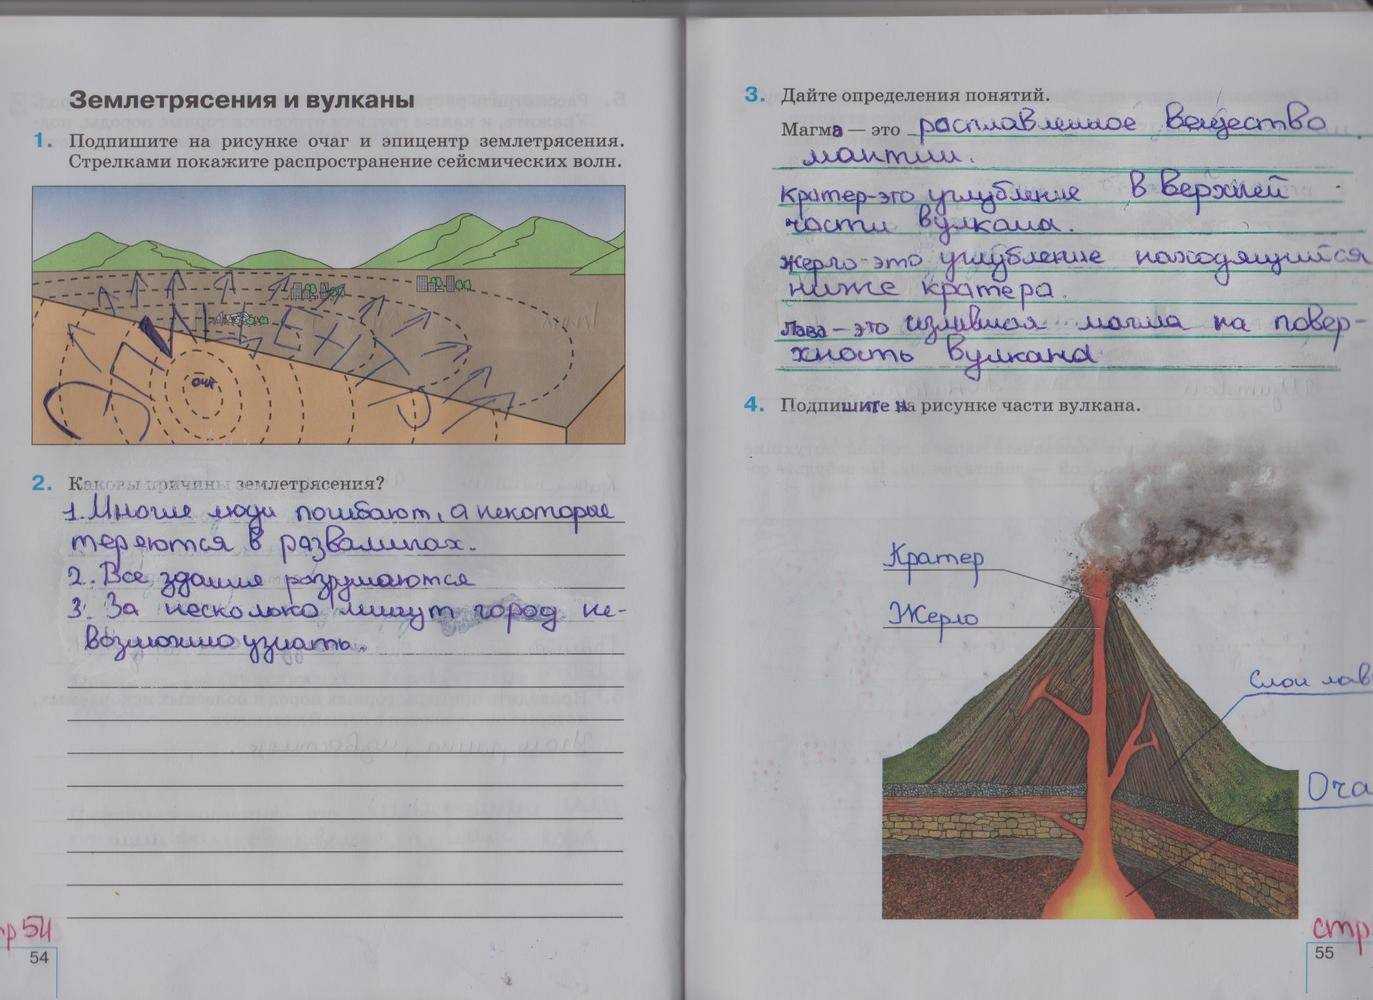 Землетрясения и вулканы
1. Подпишите на рисунке очаг и эпицентр землетрясения.
Стрелками покажите распространение сейсмических волн.
очаг
2. Каковы причины землетрясения?
1. Многие люди погибают, а некоторые
теряются в развалинах.
2. Все здания разрушаются
3. За несколько минут город не-
возможно узнать.
стр 54
54
3. Дайте определения понятий.
Магма — это расплавленное вещество
мантии.
Кратер-это углубление в верхней
части вулкана.
Жерло-это углубление находящийся
ниже кратера.
Лава — это излившая магма на повер-
хность вулкана
4. Подпишите на рисунке части вулкана.
Кратер
Жерло
Слои лав
Оча
стр
55